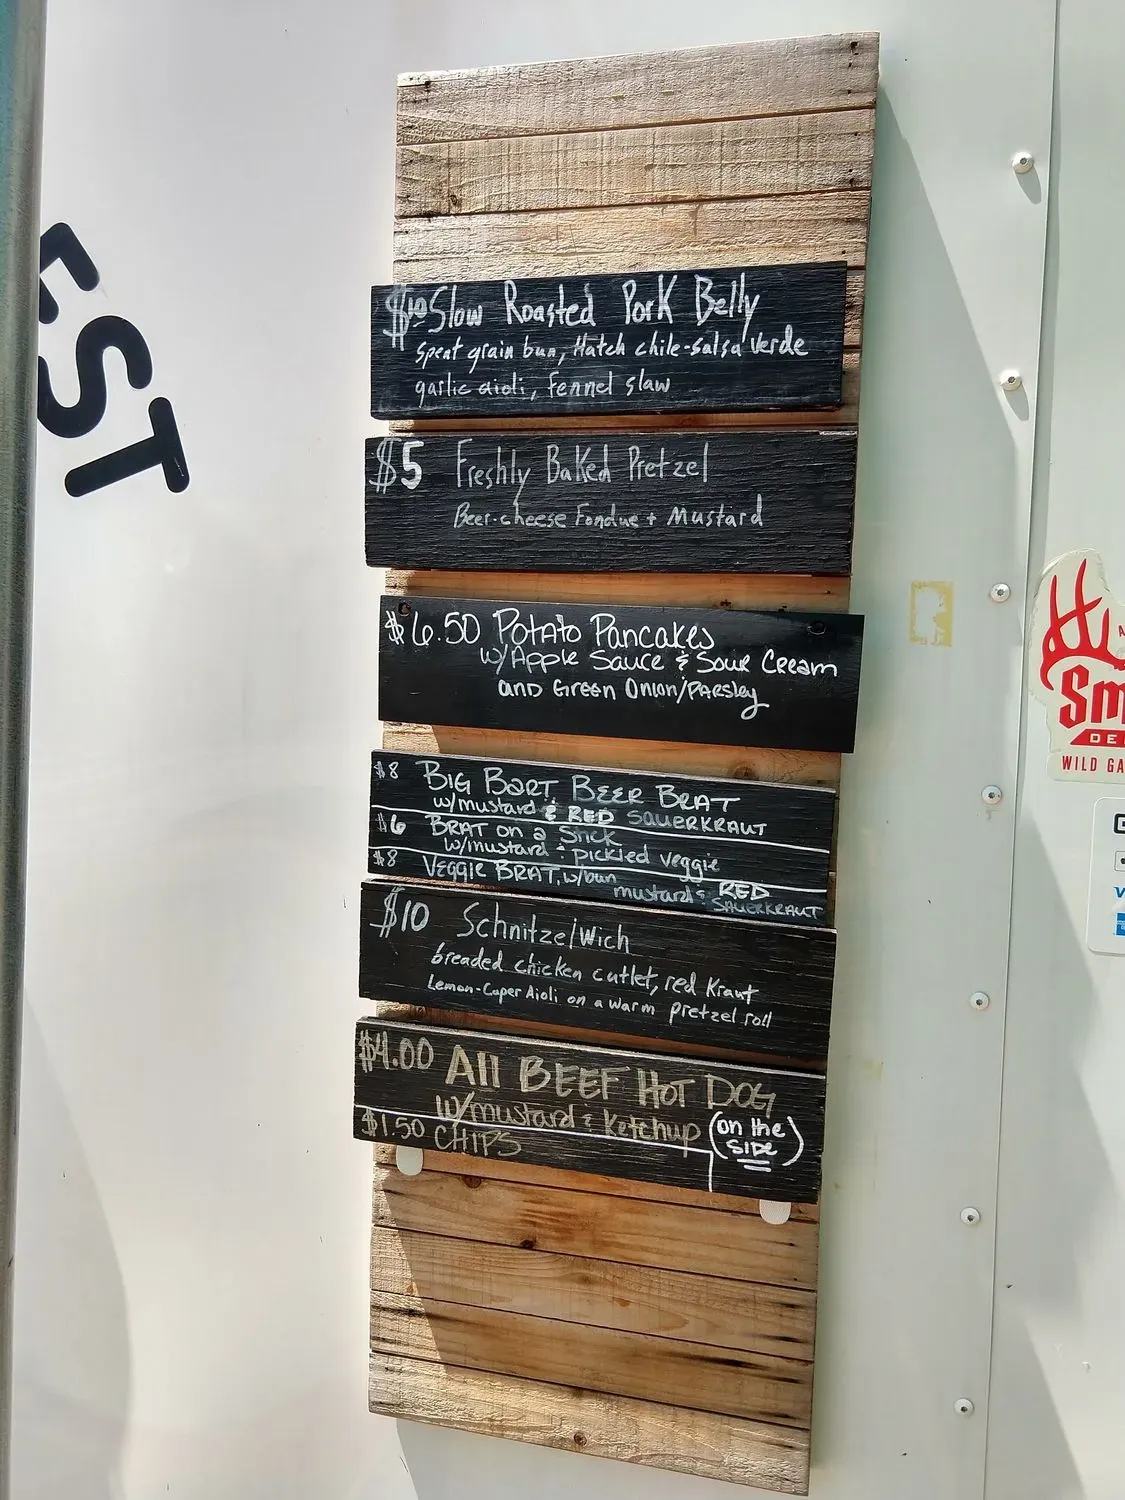 EST
$10 Slow Roasted Pork Belly
Spent grain bun, Hatch chile-salsa verde
garlic aioli, Fennel slaw
$5 Freshly Baked Pretzel
Beer-cheese Fondue + Mustard
$6.50 Potato Pancakes
w/Apple Sauce & Sour Cream
and Green Onion/Parsley
$8 Big Bart Beer Brat
w/mustard & RED SAUERKRAUT
$6 BRAT on a Stick
w/mustard & pickled veggie
$8 Veggie BRAT, w/bun
mustard & RED
SAUERKRAUT
$10 Schnitzelwich
breaded chicken cutlet, red Kraut
Lemon-Caper Aioli on a warm pretzel roll
$4.00 All BEEF HOT DOG
w/mustard & Ketchup (on the
SIDE)
$1.50 CHIPS
Sm
DE
WILD GA